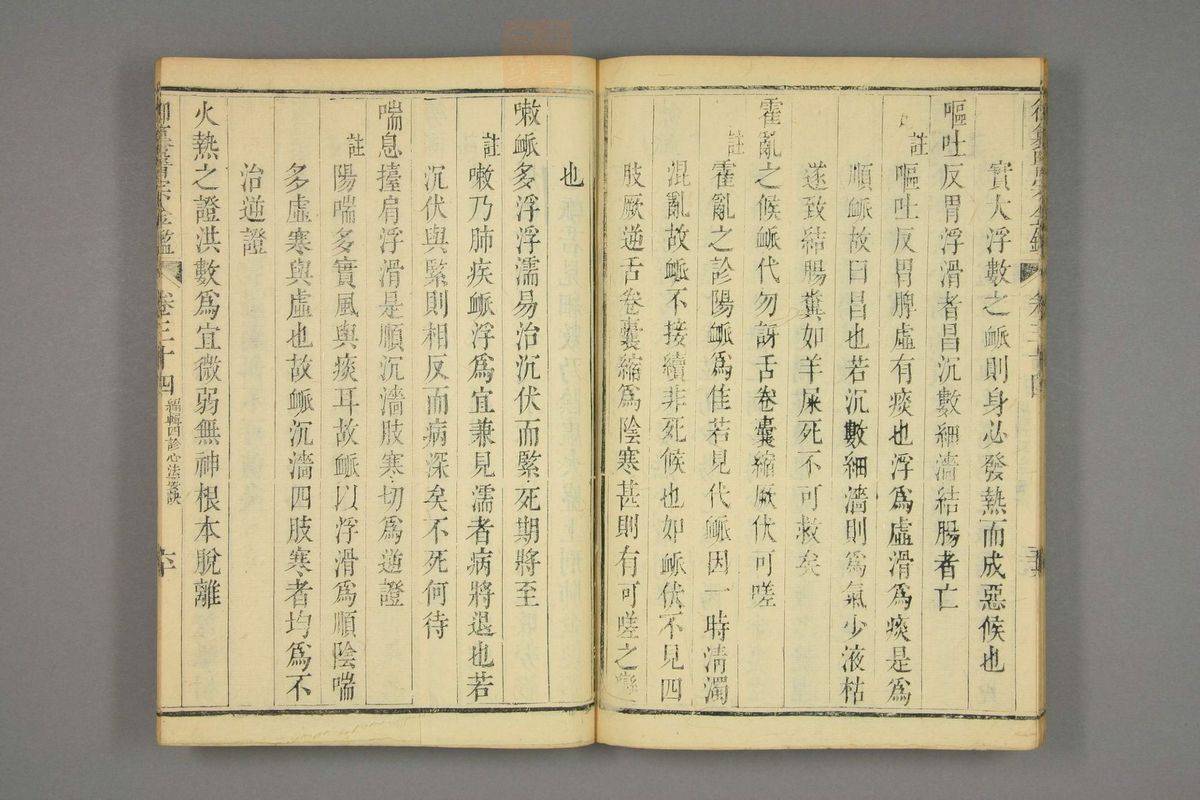 實大浮數之衇則身必發熱而成惡候也
嘔吐反胃浮滑者昌沉數細濇結腸者亡
註嘔吐反胃脾虛有痰也浮爲虛滑爲痰是爲
順衇故曰昌也若沉數細濇則爲氣少液枯
遂致結腸糞如羊屎死不可救矣
霍亂之候衇代勿訝舌卷囊縮厥伏可嗟
註霍亂之診陽衇爲佳若見代衇因一時清濁
混亂故衇不接續非死候也如衇伏不見四
肢厥逆舌卷囊縮爲陰寒甚則有可嗟之變
也
嗽衇多浮浮濡易治沉伏而緊死期將至
註嗽乃肺疾衇浮爲宜兼見濡者病將退也若
沉伏與緊則相反而病深矣不死何待
喘息擡肩浮滑是順沉濇肢寒切爲逆證
註陽喘多實風與痰耳故衇以浮滑爲順陰喘
多虛寒與虛也故衇沉濇四肢寒者均爲不
治逆證
火熱之證洪數爲宜微弱無神根本脫離
御纂醫宗金鑑 卷三十四 編輯四診心法要訣